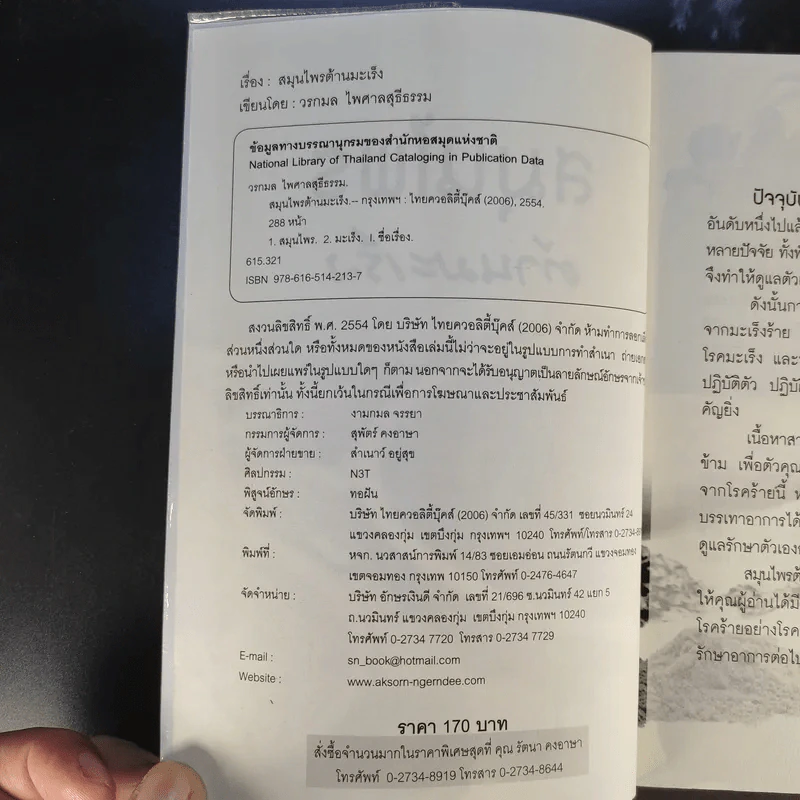 เรื่อง : สมุนไพรต้านมะเร็ง
เขียนโดย : วรกมล ไพศาลสุธีธรรม
ข้อมูลทางบรรณานุกรมของสำนักหอสมุดแห่งชาติ
National Library of Thailand Cataloging in Publication Data
วรกมล ไพศาลสุธีธรรม.
สมุนไพรต้านมะเร็ง.-- กรุงเทพฯ : ไทยควอลิตี้บุ๊คส์ (2006), 2554.
288 หน้า
1. สมุนไพร. 2. มะเร็ง. I. ชื่อเรื่อง.
615.321
ISBN 978-616-514-213-7
สงวนลิขสิทธิ์ พ.ศ. 2554 โดย บริษัท ไทยควอลิตี้บุ๊คส์ (2006) จำกัด ห้ามทำการ
ส่วนหนึ่งส่วนใด หรือทั้งหมดของหนังสือเล่มนี้ไม่ว่าจะอยู่ในรูปแบบการทำสำเนา
หรือนำไปเผยแพร่ในรูปแบบใดๆ ก็ตาม นอกจากจะได้รับอนุญาตเป็นลายลักษณ์อักษรจาก
ลิขสิทธิ์เท่านั้น ทั้งนี้ยกเว้นในกรณีเพื่อการโฆษณาและประชาสัมพันธ์
บรรณาธิการ : งามกมล จรรยา
กรรมการผู้จัดการ : สุพัตร์ คงอาษา
ผู้จัดการฝ่ายขาย : สำเนาว์ อยู่สุข
ศิลปกรรม : N3T
พิสูจน์อักษร : ทอฝัน
จัดพิมพ์ : บริษัท ไทยควอลิตี้บุ๊คส์ (2006) จำกัด เลขที่ 45/331 ซอยนวมินทร์ 24
แขวงคลองกุ่ม เขตบึงกุ่ม กรุงเทพฯ 10240 โทรศัพท์/โทรสาร
พิมพ์ที่ : หจก. นวสาสน์การพิมพ์ 14/83 ซอยเอมอ่อน ถนนรัตนกวี แขวงจอมทอง
เขตจอมทอง กรุงเทพ 10150 โทรศัพท์ 0-2476-4647
จัดจำหน่าย : บริษัท อักษรเงินดี จำกัด เลขที่ 21/696 ซ.นวมินทร์ 42 แยก 5
ถ.นวมินทร์ แขวงคลองกุ่ม เขตบึงกุ่ม กรุงเทพฯ 10240
โทรศัพท์ 0-2734 7720 โทรสาร 0-2734 7729
E-mail : sn_book@hotmail.com
Website : www.aksorn-ngerndee.com
ราคา 170 บาท
สั่งซื้อจำนวนมากในราคาพิเศษสุดที่ คุณ รัตนา คงอาษา
โทรศัพท์ 0-2734-8919 โทรสาร 0-2734-8644
ปัจจุบัน
อันดับหนึ่งไปแล้
หลายปัจจัย
จึงทำให้ดูแลตัว
ดังนั้น
จากมะเร็งร้าย
โรคมะเร็ง และ
ปฏิบัติตัว
คัญยิ่ง
เนื้อหา
ข้าม เพื่อตัวคุณ
จากโรคร้ายนี้
บรรเทาอาการได้
ดูแลรักษาตัวเอง
สมุนไพรต้
ให้คุณผู้อ่านได้มี
โรคร้ายอย่างโรค
รักษาอาการต่อไป